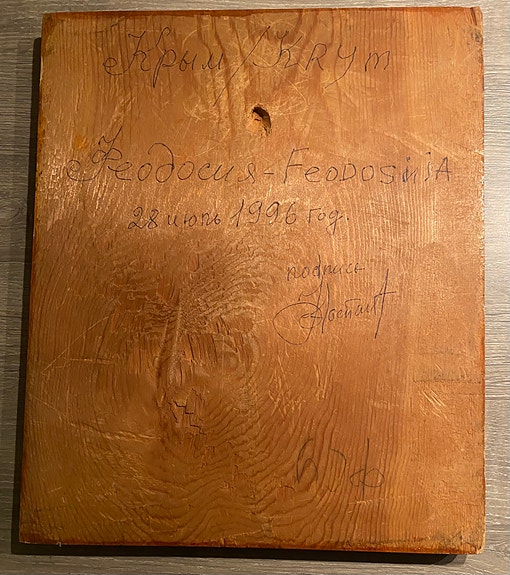 Крым/KRYm
Феодосия-FEODOSiiA
28 июль 1996 год.
подпись